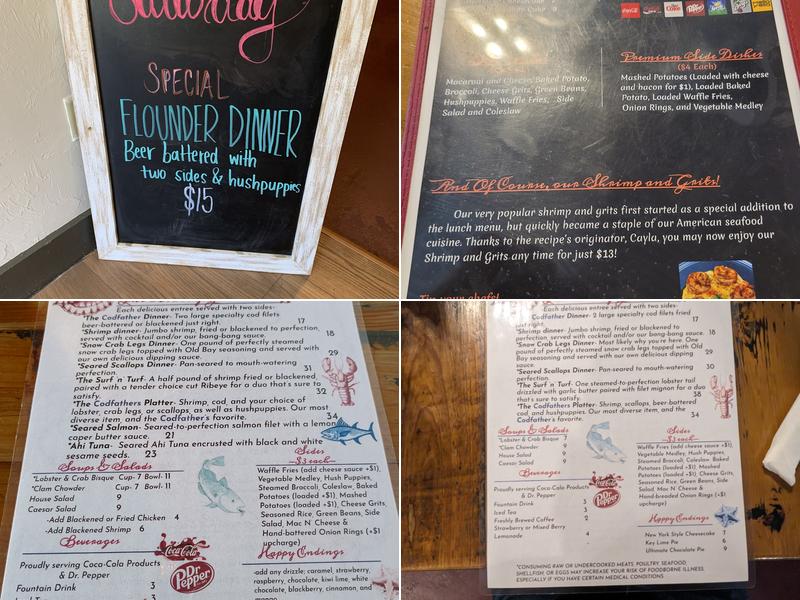 Saturday
SPECIAL
FLOUNDER DINNER
Beer battered with
two sides & hushpuppies
$15
Premium Side Dishes
($4 Each)
Macaroni and Cheese, Baked Potato,
Broccoli, Cheese Grits, Green Beans,
Hushpuppies, Waffle Fries, Side
Salad and Coleslaw
Mashed Potatoes (Loaded with cheese
and bacon for $1), Loaded Baked
Potato, Loaded Waffle Fries,
Onion Rings, and Vegetable Medley
And Of Course, our Shrimp and Grits!
Our very popular shrimp and grits first started as a special addition to
the lunch menu, but quickly became a staple of our American seafood
cuisine. Thanks to the recipe's originator, Cayla, you may now enjoy our
Shrimp and Grits any time for just $13!
Each delicious entree served with two sides-
*The Codfather Dinner- Two large specialty cod filets
beer-battered or blackened just right. 17
*Shrimp dinner- Jumbo shrimp, fried or blackened to perfection,
served with cocktail and/or our bang-bang sauce. 18
*Snow Crab Legs Dinner- One pound of perfectly steamed
snow crab legs topped with Old Bay seasoning and served with
our own delicious dipping sauce. 29
*Seared Scallops Dinner- Pan-seared to mouth-watering
perfection. 31
*The Surf 'n' Turf- A half pound of shrimp fried or blackened,
paired with a tender choice cut Ribeye for a duo that's sure to
satisfy. 32
*The Codfathers Platter- Shrimp, cod, and your choice of
lobster, crab legs, or scallops, as well as hushpuppies. Our most
diverse item, and the Codfather's favorite. 34
*Seared Salmon- Seared-to-perfection salmon filet with a lemon
caper butter sauce. 21
*Ahi Tuna- Seared Ahi Tuna encrusted with black and white
sesame seeds. 23
Soups & Salads
*Lobster & Crab Bisque Cup- 7 Bowl- 11
*Clam Chowder Cup- 7 Bowl- 11
House Salad 9
Caesar Salad 9
-Add Blackened or Fried Chicken 4
-Add Blackened Shrimp 6
Beverages
Proudly serving Coca-Cola Products
& Dr. Pepper
Fountain Drink 3
Iced Tea 3
Coca-Cola
Dr Pepper
Sides
$3 each
Waffle Fries (add cheese sauce +$1),
Vegetable Medley, Hush Puppies,
Steamed Broccoli, Coleslaw, Baked
Potatoes (loaded +$1), Mashed
Potatoes (loaded +$1), Cheese Grits,
Seasoned Rice, Green Beans, Side
Salad, Mac N' Cheese &
Hand-battered Onion Rings (+$1
upcharge)
Happy Endings
-add any drizzle; caramel, strawberry,
raspberry, chocolate, kiwi lime, white
chocolate, blackberry, cinnamon, and
mango
Each delicious entree served with two sides-
The Codfather Dinner- 2 large specialty cod filets fried
just right. 17
*Shrimp dinner- Jumbo shrimp, fried or blackened to
perfection, served with cocktail and/or our bang-bang sauce. 18
*Snow Crab Legs Dinner- Most likely why you're here. One
pound of perfectly steamed snow crab legs topped with Old
Bay seasoning and served with our own delicious dipping
sauce. 29
*Seared Scallops Dinner- Pan-seared to mouth-watering
perfection. 30
*The Surf 'n' Turf- One steamed-to-perfection lobster tail
drizzled with garlic butter paired with filet mignon for a duo
that's sure to satisfy. 38
*The Codfathers Platter- Shrimp, scallops, beer-battered
cod, and hushpuppies. Our most diverse item, and the
Codfather's favorite. 34
Soups & Salads
*Lobster & Crab Bisque 7
*Clam Chowder 7
House Salad 9
Caesar Salad 9
Beverages
Proudly serving Coca-Cola Products
& Dr. Pepper
Fountain Drink 3
Iced Tea 3
Freshly Brewed Coffee 2
Strawberry or Mixed Berry
Lemonade 4
Coca-Cola
Dr Pepper
Sides
$3 each
Waffle Fries (add cheese sauce +$1),
Vegetable Medley, Hush Puppies,
Steamed Broccoli, Coleslaw, Baked
Potatoes (loaded +$1), Mashed
Potatoes (loaded +$1), Cheese Grits,
Seasoned Rice, Green Beans, Side
Salad, Mac N' Cheese &
Hand-breaded Onion Rings (+$1)
Happy Endings
New York Style Cheesecake 7
Key Lime Pie 6
Ultimate Chocolate Pie 9
*CONSUMING RAW OR UNDERCOOKED MEATS, POULTRY, SEAFOOD,
SHELLFISH, OR EGGS MAY INCREASE YOUR RISK OF FOODBORNE ILLNESS,
ESPECIALLY IF YOU HAVE CERTAIN MEDICAL CONDITIONS